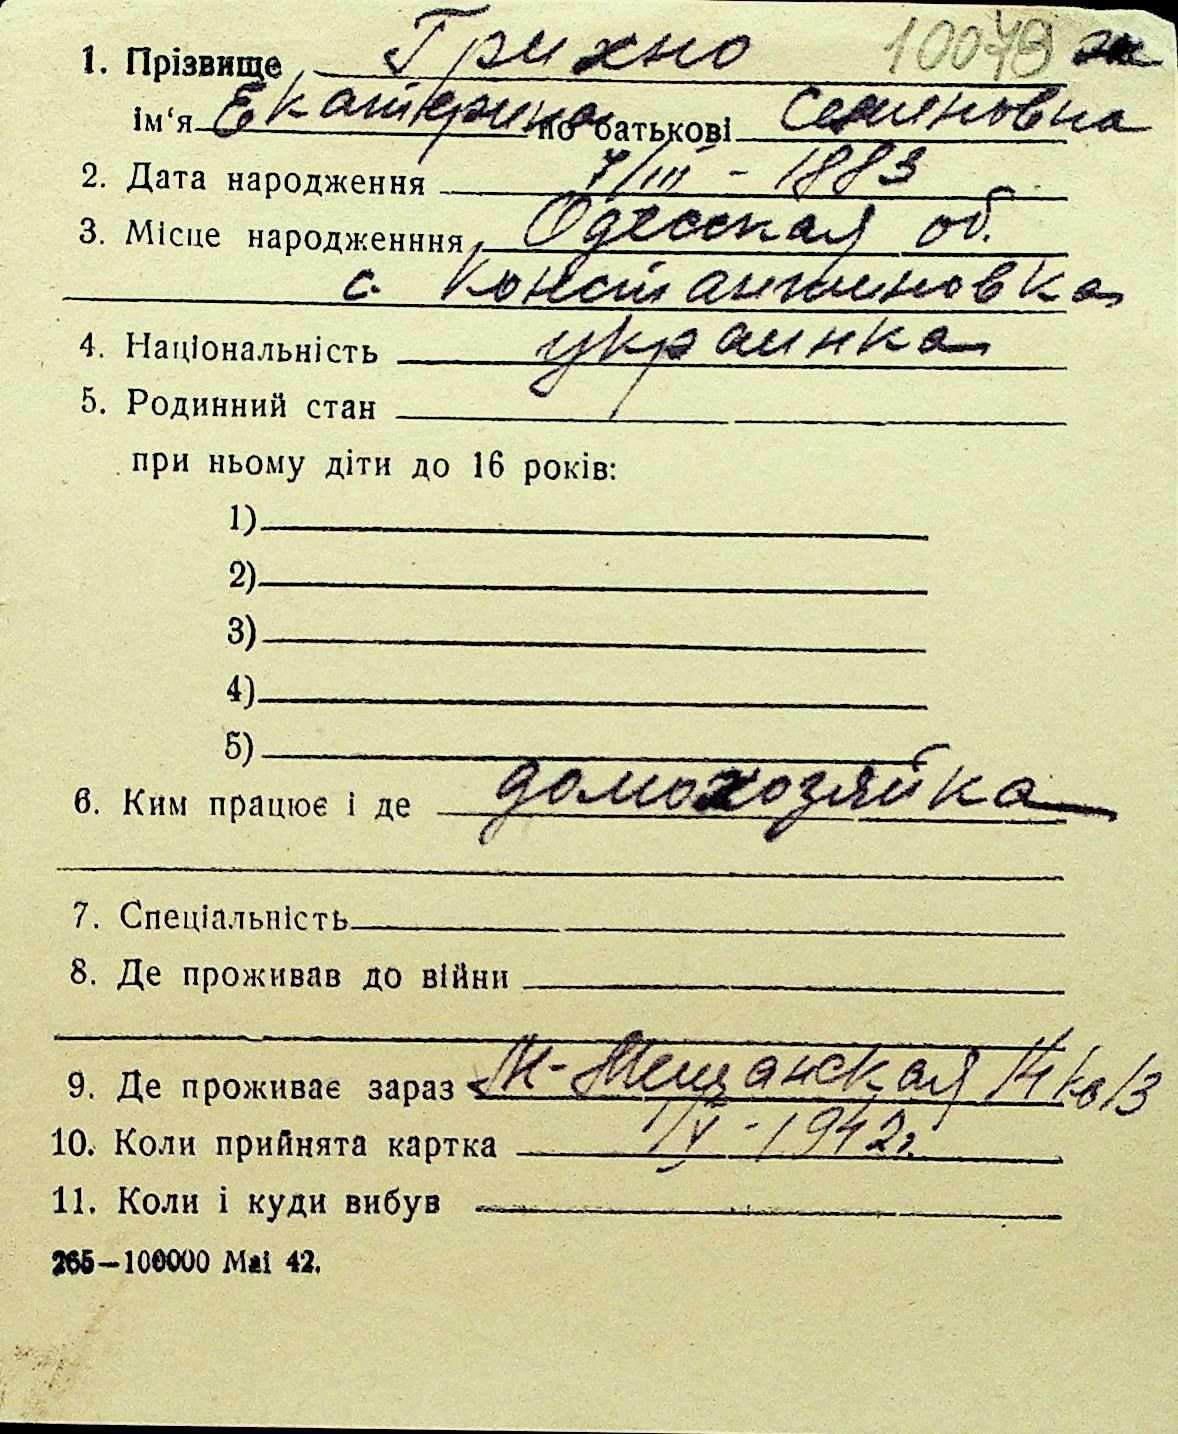 1. Прізвище Грихно 10073 ж
ім‘я Екатерина по батькові Семеновна
2. Дата народження 7/III - 1883
3. Місце народженння Одесская об.
с. Константиновка
4. Національність украинка
5. Родинний стан
при ньому діти до 16 років:
1)
2)
3)
4)
5)
6. Ким працює і де домохозяйка
7. Спеціальність
8. Де проживав до війни
9. Де проживає зараз М-Мещанская 14 кв 3
10. Коли прийнята картка 1/V - 1942 г.
11. Коли і куди вибув
265—100000 Маі 42.